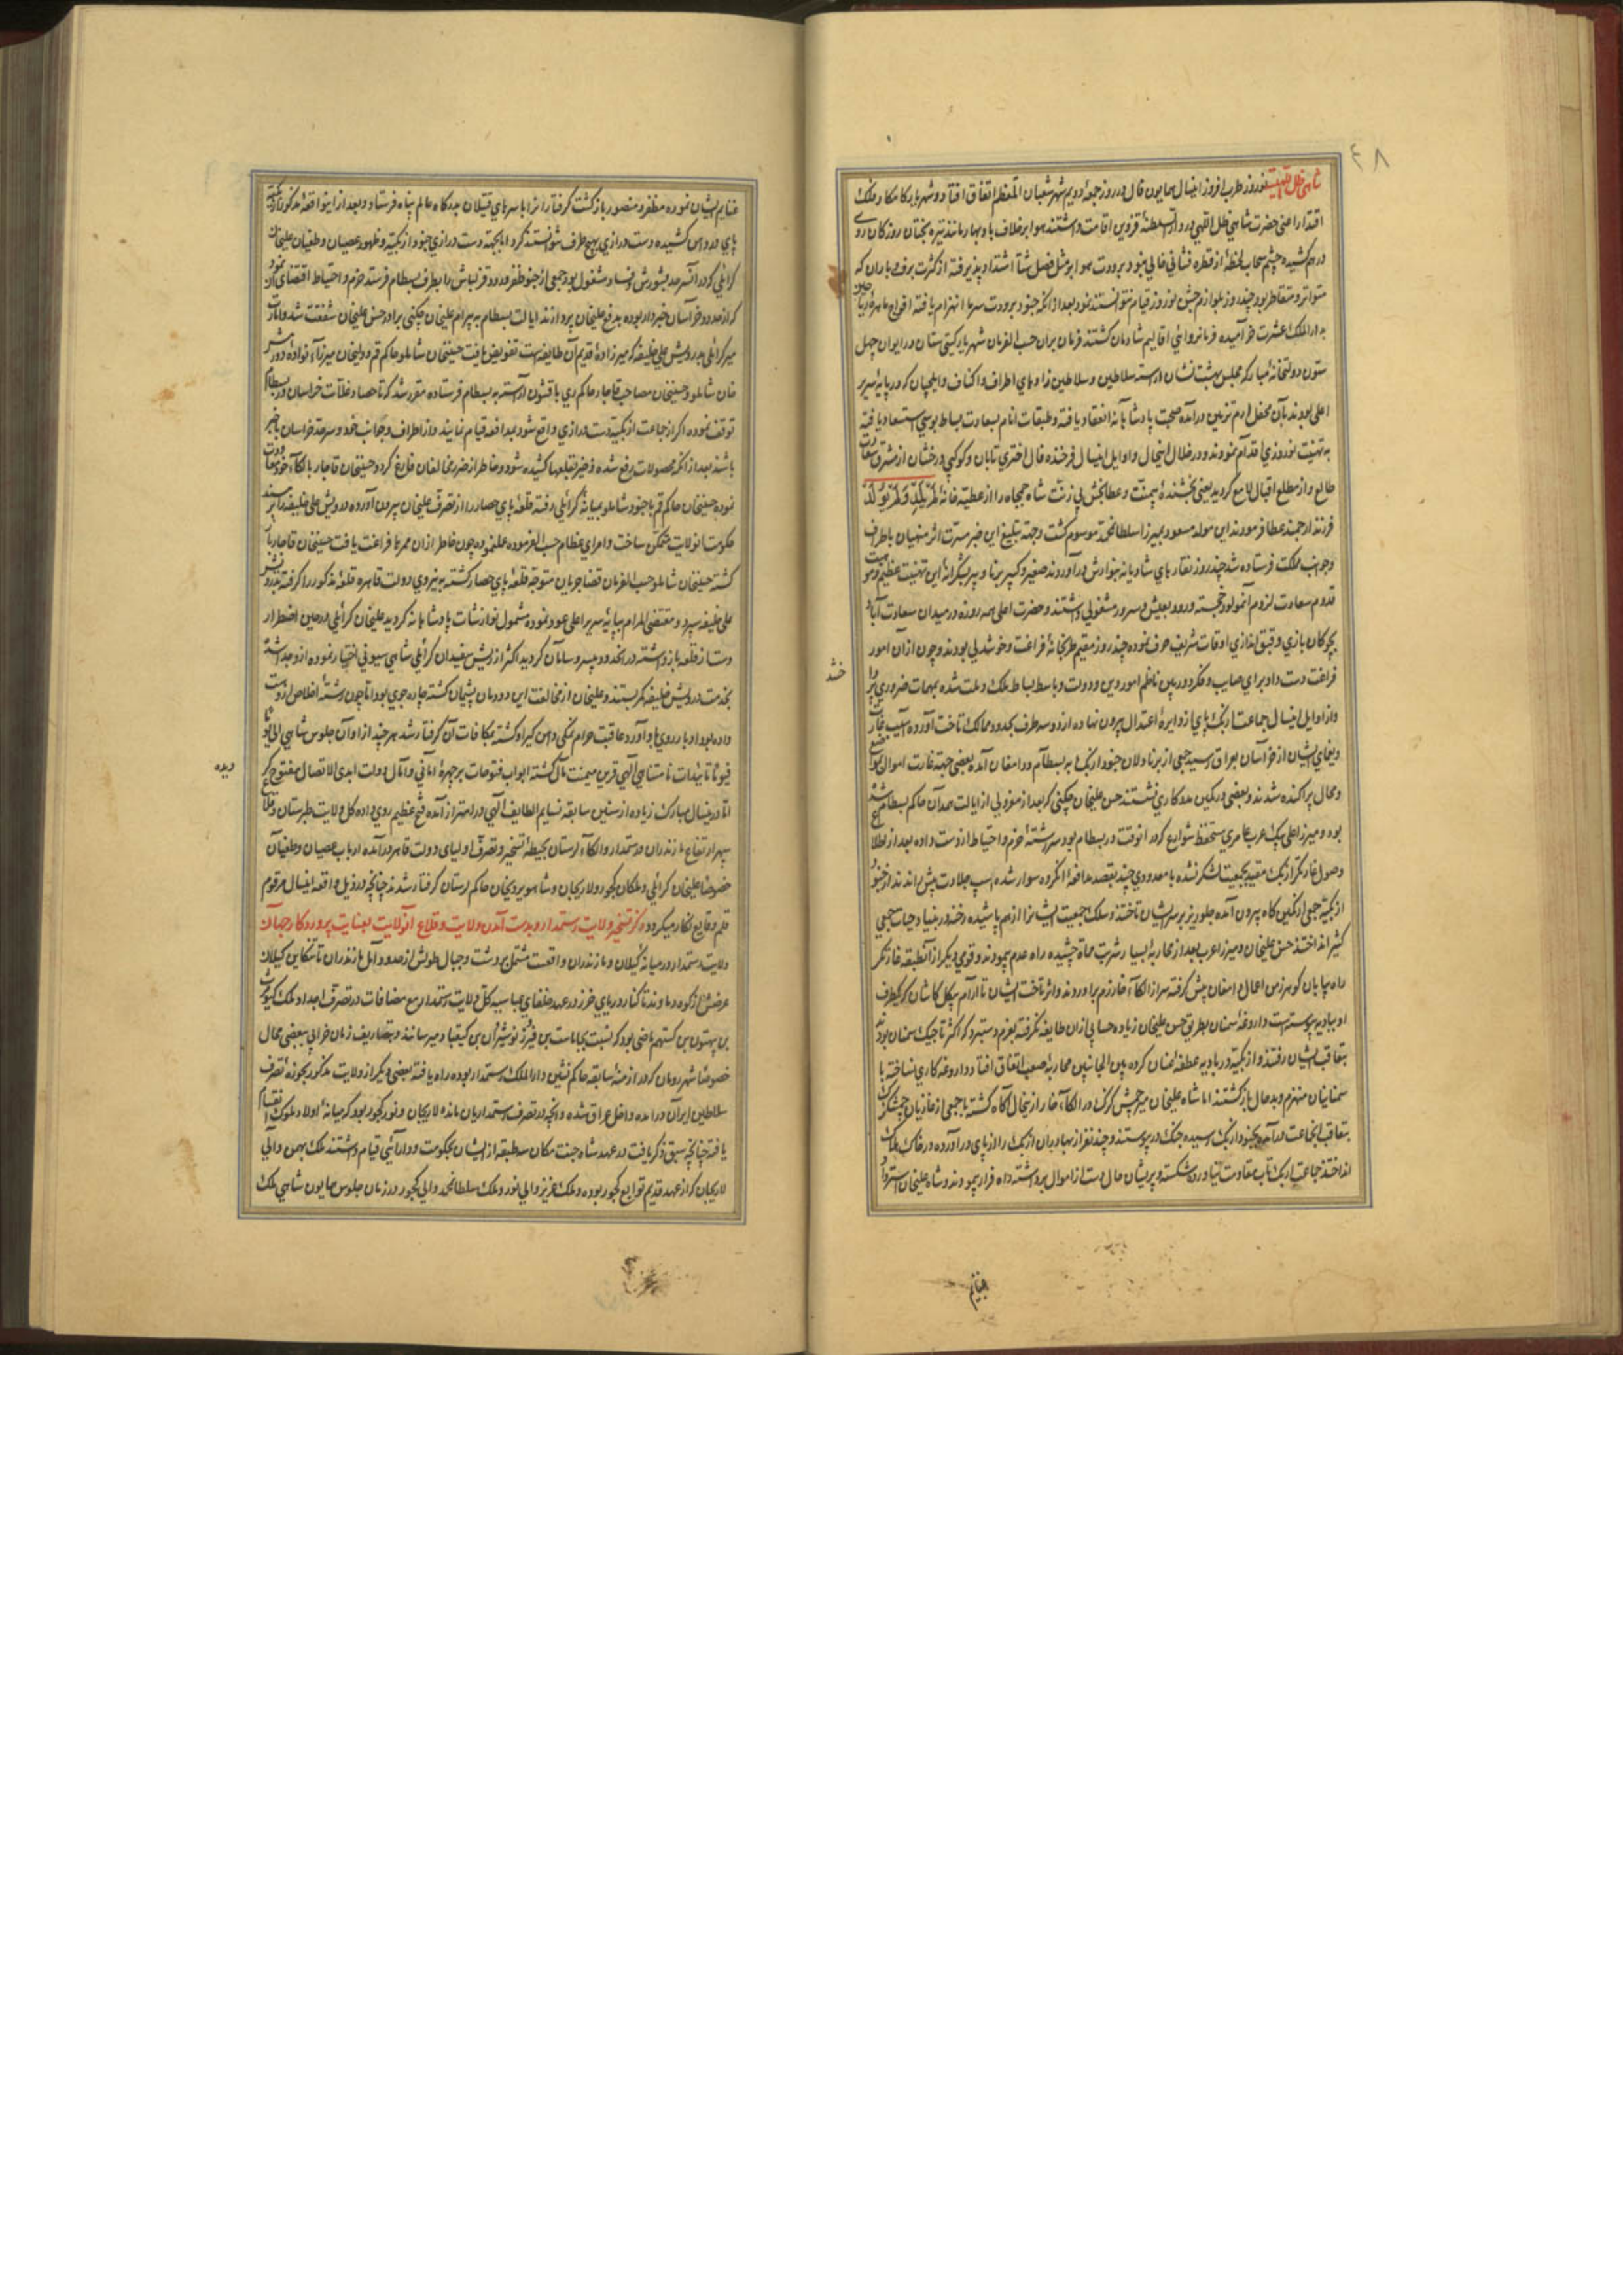 ۴۸
شاهی ظل اللهی نوروز طرب افروز اینسال همایون فال در روز جمعه دویم شهر شعبان المعظم اتفاق افتاد و شهریار کامکار فلک
اقتدار اعنی حضرت شاهی ظل اللهی در دار السلطنه قزوین اقامت داشتند هوا بر خلاف باد بهار مانند تیره بختان روزگار روی
درهم کشیده چشم سحاب لحظه از قطره فشانی خالی نبود و برودت هوا بر مثل فصل شتا اشتداد پذیرفته از کثرت برف و باران که
متواتر و متقاطر بود چند روز بلوازم جشن نوروز قیام نتوانستند نمود بعد از آنکه جنود برودت سرما انهزام یافته افواج
بدار الملک عشرت خرامیده فرمانروای اقالیم شادمان گشتند فرمان بران حسب الفرمان شهریار گیتی ستان در ایوان چهل
ستون دولتخانه مبارکه مجلس بهشت نشان آراسته سلاطین و سلاطین زادهای اطراف و اکناف و ایلچیان که در پایه سریر
اعلی بودند بآن محفل ارم تزیین درآمده صحبت پادشاهانه انعقاد یافته و طبقات انام بسعادت بساط بوسی استسعاد یافته
به تهنیت نوروزی اقدام نمودند و در خلال اینحال و اوایل اینسال فرخنده فال اختری تابان و کوکبی درخشان از مشرق سعادت
طالع و از مطلع اقبال لامع گردید یعنی بخشنده بیمنت و عطابخش بی زینت شاه جمجاه را از عطیه خانه لم یلد ولم یولد
فرزند ارجمند عطا فرمودند این مولد مسعود بمیرزا سلطان محمد موسوم گشت و جهة تبلیغ این خبر مسرت اثر منهیان باطراف
و جوانب مملکت فرستاده شد چند روز نقارهای شادیانه بنوازش درآوردند صغیر و کبیر برنا و پیر بشکرانه این تهنیت عظیم و موهبت
قدوم سعادت لزوم آنمولود خجسته ورود بعیش و سرور مشغولی داشتند و حضرت اعلی همه روزه در میدان سعادت آباد
بچوکان بازی و قبق اندازی اوقات شریف صرف نموده چند روز مقیم طربخانه فراغت و خوشدلی بودند و چون از آن امور
فراغت دست داد برای صایب و فکر دوربین ناظم امور دین و دولت و باسط بساط ملک و ملت شده بمهمات ضروری
و از اوایل اینسال جماعت ازبک پای از دایره اعتدال بیرون نهاده از دو سه طرف بحدود ممالک تاخت آورده آسیب غارت
و یغمای ایشان از خراسان بعراق رسید جمعی از برناولان جنود ازبک به بسطام و دامغان آمده بعضی جهة غارت اموال
و محال پراکنده شدند و بعضی در کمین مددکاری نشستند حسن علیخان چگنی که بعد از معزولی از ایالت همدان حاکم بسطام شده
بود و میرزا علی بیک عرب عامری مستحفظ شوارع که در آنوقت در بسطام بود سررشته حزم و احتیاط از دست داده بعد از اطلاع
وصول غارتگر ازبک مقید بجمعیت لشکر نشده با معدودی چند بقصد مدافعه آنگروه سوار شده اسب جلادت پیش راندند از جنود
ازبکیه جمعی از کمین گاه بیرون آمده جلوریز بر سر ایشان تاختند و سلک جمعیت ایشانرا از هم پاشیده رخنه در بنیاد حیات جمعی
کثیر انداختند حسن علیخان و میرزا عرب بعد از محاربه بسیار شربت ممات چشیده راه عدم پیمودند و قومی دیگر از آنطبقه غارتگر
راه بیابان کویر زمین اعمال دامغان پیش گرفته سر از الکاء خار زرم برآوردند و اثر تاخت ایشان تا آرام بیکل کاشان که یکطرف
او ببادیه پیوسته است داروغه سمنان بطریق حسن علیخان زیاده حسابی از آن طایفه نگرفته بعزم دستبرد که اکثر تاجیک سمنان بودند
بتعاقب ایشان رفتند و ازبکیه در بادیه عطفه عنان کرده بین الجانبین محاربه صعب اتفاق افتاد و داروغه کاری نساخته با
سمنانیان منهزم و بدحال بازگشتند اما شاه علیخان میرچمش گزک در الکاء خار از ینحال آگاه گشته با جمعی از غازیان چمشگزک
بتعاقب آنجماعت درآمده بجنود ازبک رسیده جنگ در پیوستند و چند نفر از بهادران ازبک را از پای درآورده در خاک هلاک
انداختند جماعت ازبک تاب مقاومت نیاورده شکسته و پریشان حال دست از اموال برداشته راه فرار پیمودند و شاه علیخان استرداد
غنایم
غنایم ایشان نموده مظفر و منصور بازگشت گرفتارانرا با سرهای قتیلان بدرگاه عالم پناه فرستاد و بعد از اینواقعه مذکور ازبکیه
پای در دامن کشیده دست درازی بهیچ طرف نتوانستند کرد اما بجهة دست درازی جنود ازبکیه و ظهور عصیان و طغیان علیخان
کرائلی که در آنسرحد بشورش و فساد مشغول بود جمعی از جنود ظفر ورود قزلباش را بطرف بسطام فرستند حزم و احتیاط اقتضای آن نمود
که از حدود خراسان خبردار بوده بدفع علیخان پردازند ایالت بسطام به بیرام علیخان چگنی برادر حسن علیخان شفقت شد و ایالت
میر کرائلی بدرویش علی خلیفه که میرزاده قدیم آن طایفه است تفویض یافت حسینخان شاملو حاکم قم و ولیخان میرزاء نواده دورمیش
خان شاملو و حسینخان مصاحب قاجار حاکم ری با قشون آراسته به بسطام فرستاده مقرر شد که تا حصاد غلات خراسان در بسطام
توقف نموده اگر از جماعت ازبکیه دست درازی واقع شود بمدافعه قیام نمایند و از اطراف و جوانب خود و سرحد خراسان باخبر
باشند بعد از آنکه محصولات رفع شده ذخیره بقلعها کشیده شود و خاطر از ضرر مخالفان فارغ گردد حسینخان قاجار بالکاء خود معاودت
نموده حسینخان حاکم قم با جنود شاملو بمیانه کرائلی رفته قلعه پای حصار را از تصرف علیخان بیرون آورده درویش علی خلیفه را بر مسند
حکومت آنولایت متمکن ساخت و امرای عظام حسب الفرموده عمل نموده چون خاطر از آن ممرها فراغت یافت حسینخان قاجار
گشته حسینخان شاملو حسب الفرمان قضا جریان متوجه قلعه پای حصار گشته به نیروی دولت قاهره قلعه مذکور را گرفته بدرویش
علی خلیفه سپرد و مقتضی المرام بپایه سریر اعلی عود نموده مشمول نوازشات پادشاهانه گردید علیخان کرائلی در حین اضطرار
دست از قلعه بازداشته در آنحدود بیسر و سامان گردید اکثر از ریش سفیدان کرائلی شاهی سیونی اختیار نموده ازو جدا شده
بخدمت درویش خلیفه کمر بستند و علیخان از مخالفت این دودمان پشیمان گشته چاره جوی بود اما چون رشته اخلاص از دست
داده بود ادبار روی باو آورد عاقبت حرام نمکی دامن گیر او گشته بمکافات آن گرفتار شد هرچند از اوان جلوس شاهی الی
فیوضات تأییدات نامتناهی الهی قرین میمنت مآل گشته ابواب فتوحات بر چهره امانی و آمال دولت ابدی الاتصال مفتوح
اما در اینسال مبارک زیاده از سنین سابقه نسایم الطایف الهی در اهتزاز آمده فتح عظیم روی داده کل ولایت طبرستان و قلاع
سپهر ارتفاع مازندران و رستمدار و الکاء لرستان بحیطه تسخیر و تصرف اولیای دولت قاهره درآمده ارباب عصیان و طغیان
خصوصا علیخان کرائلی و ملکان کجور و لاریجان و شاهویردیخان حاکم لرستان گرفتار شدند چنانچه در ذیل واقعه اینسال مرقوم
قلم وقایع نگار میگردد ذکر تسخیر ولایت رستمدار و بدست آمدن ولایت و قلاع آنولایت بعنایت پروردگار جهان
ولایت رستمدار در میانه گیلان و مازندران واقعست مشتمل بر دشت و جبال طولش از حدود آمل مازندران تا تنکابن گیلان
عرضش از کوه دماوند تا کنار دریای خزر در عهد خلفای عباسیه کل ولایت رستمدار مع مضافات در تصرف اجداد ملک کیومرث
بن بهستون بن گستهم ماضی بود که نسبت بجاماسب بن فیروز نوشیروان بن کیقباد میرسانند و بتصاریف زمان خرابی ببعضی محال
خصوصا شهر رویان که در ازمنه سابقه حاکم نشین و دار الملک رستمدار بوده راه یافته بعضی دیگر از ولایت مذکور بحوزه تصرف
سلاطین ایران درآمده و داخل عراق شده و آنچه در تصرف رستمداریان مانده لاریجان و نور کجور بود که میانه اولاد ملوک انقسام
یافته چنانچه سبق ذکر یافت در عهد شاه جنت مکان سه طبقه از ایشان بحکومت و دارائی قیام داشتند ملک بهمن والی
لاریجان که از عهد قدیم توابع کجور بوده و ملک عزیز والی نور و ملک سلطان محمد والی کجور در زمان جلوس همایون شاهی ملک
دیده